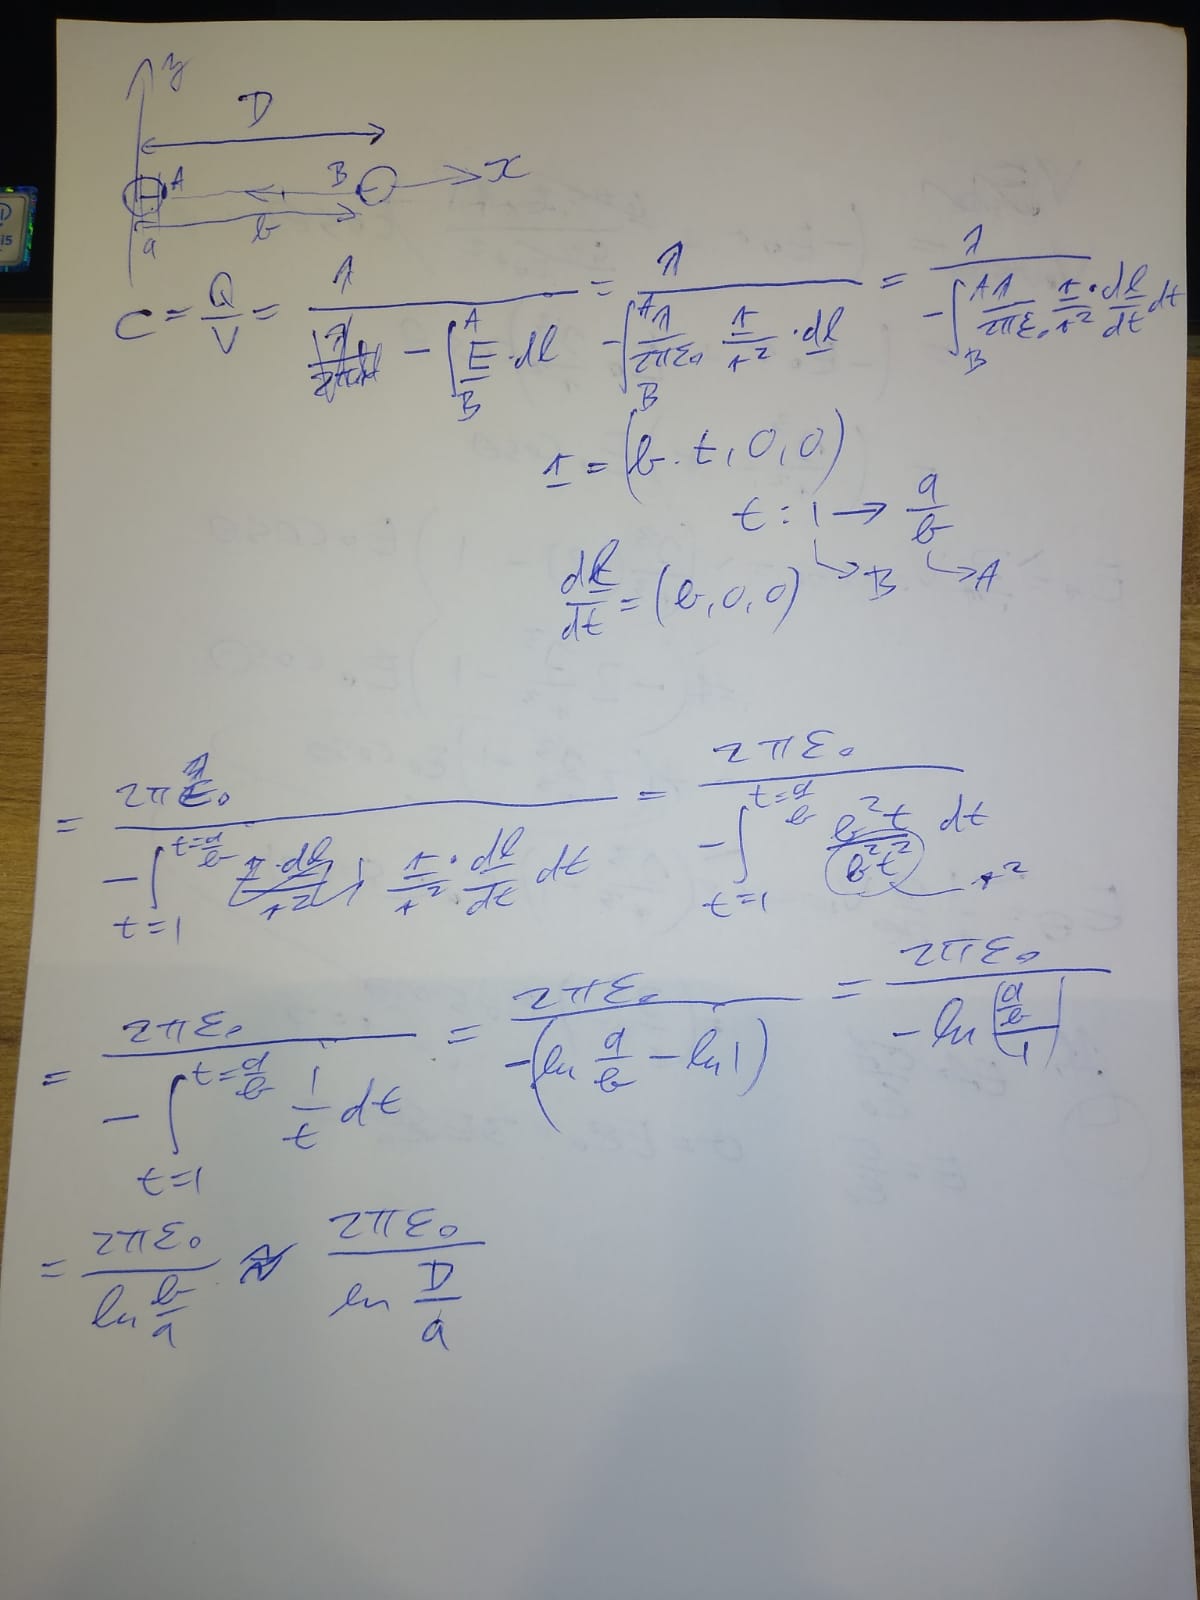 y
D
A B x
a b
C = Q/V = λ / (- ∫_B^A E · dl) = λ / (- ∫_B^A λ/(2πε₀) r/r² · dl) = λ / (- ∫_B^A λ/(2πε₀) r/r² · dl/dt dt)
r = (b · t, 0, 0)
t : 1 → a/b
dl/dt = (b, 0, 0) ↳ B ↳ A
= 2πε₀ / (- ∫_{t=1}^{t=a/b} r/r² · dl/dt dt) = 2πε₀ / (- ∫_{t=1}^{t=a/b} b²t/(b²t²) dt) r²
= 2πε₀ / (- ∫_{t=1}^{t=a/b} 1/t dt) = 2πε₀ / (-(ln a/b - ln 1)) = 2πε₀ / (- ln |(a/b)/1|)
= 2πε₀ / (ln b/a) ≈ 2πε₀ / (ln D/a)